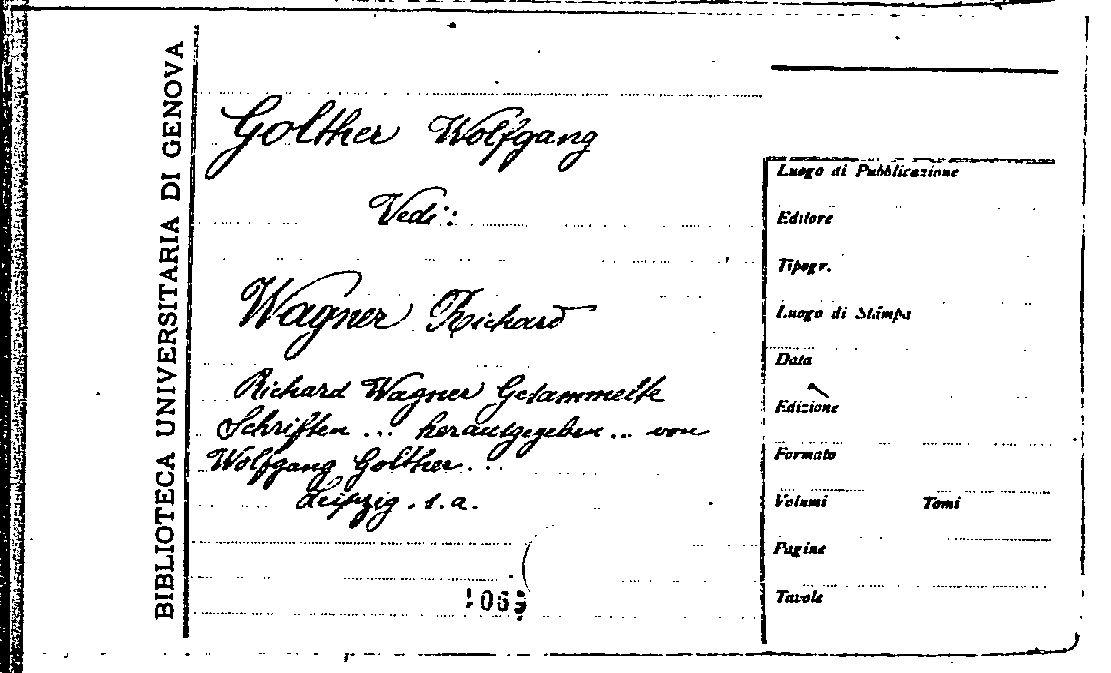 BIBLIOTECA UNIVERSITARIA DI GENOVA
Golther Wolfgang
Vedi:
Wagner Richard
Richard Wagner Gesammelte
Schriften ... herausgegeben ... von
Wolfgang Golther ...
Leipzig. s.a.
Luogo di Pubblicazione
Editore
Tipogr.
Luogo di Stampa
Data
Edizione
Formato
Volumi Tomi
Pagine
Tavole